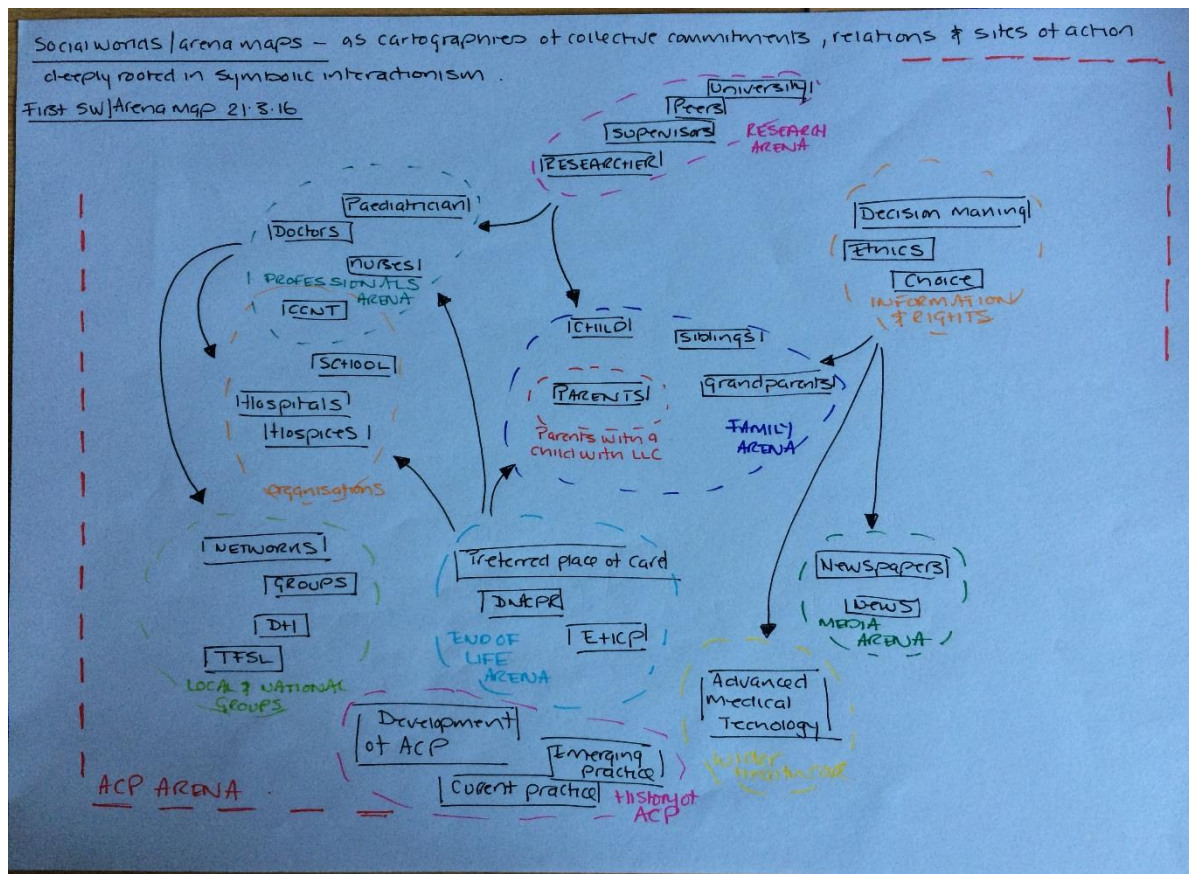 Social worlds / arena maps – as cartographies of collective commitments, relations & sites of action
deeply rooted in symbolic interactionism.
First SW/Arena Map 21.3.16
University
Peers
Supervisors
RESEARCHER
RESEARCH
ARENA
Paediatrician
Doctors
nurses
PROFESSIONALS
ARENA
CCNT
SCHOOL
Hospitals
Hospices
organisations
Decision Making
Ethics
Choice
INFORMATION
& RIGHTS
CHILD
Siblings
Grandparents
PARENTS
Parents with a
child with LLC
FAMILY
ARENA
NETWORKS
GROUPS
DH
TFSL
LOCAL & NATIONAL
GROUPS
Preferred place of care
DNACPR
EHCP
END OF
LIFE
ARENA
Newspapers
News
MEDIA
ARENA
Advanced
Medical
Tecnology
Wider
Healthcare
Development
of ACP
Emerging
practice
Current practice
History of
ACP
ACP ARENA